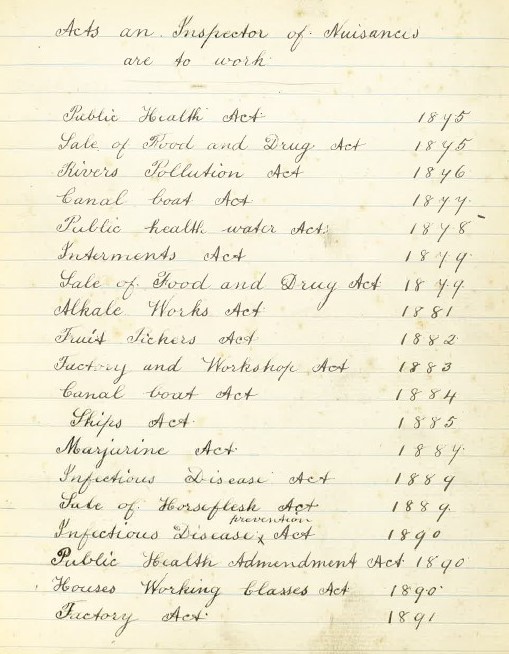 Acts an Inspector of Nuisances
are to work
Public Health Act 1875
Sale of Food and Drug Act 1875
Rivers Pollution Act 1876
Canal boat Act 1877
Public health water Act 1878
Interments Act 1879
Sale of Food and Drug Act 1879
Alkale Works Act 1881
Fruit Pickers Act 1882
Factory and Workshop Act 1883
Canal boat Act 1884
Ships Act 1885
Marjurine Act 1887
Infectious Disease Act 1889
Sale of Horseflesh Act 1889
prevention
Infectious Disease x Act 1890
Public Health Admendment Act 1890
Houses Working Classes Act 1890
Factory Act 1891